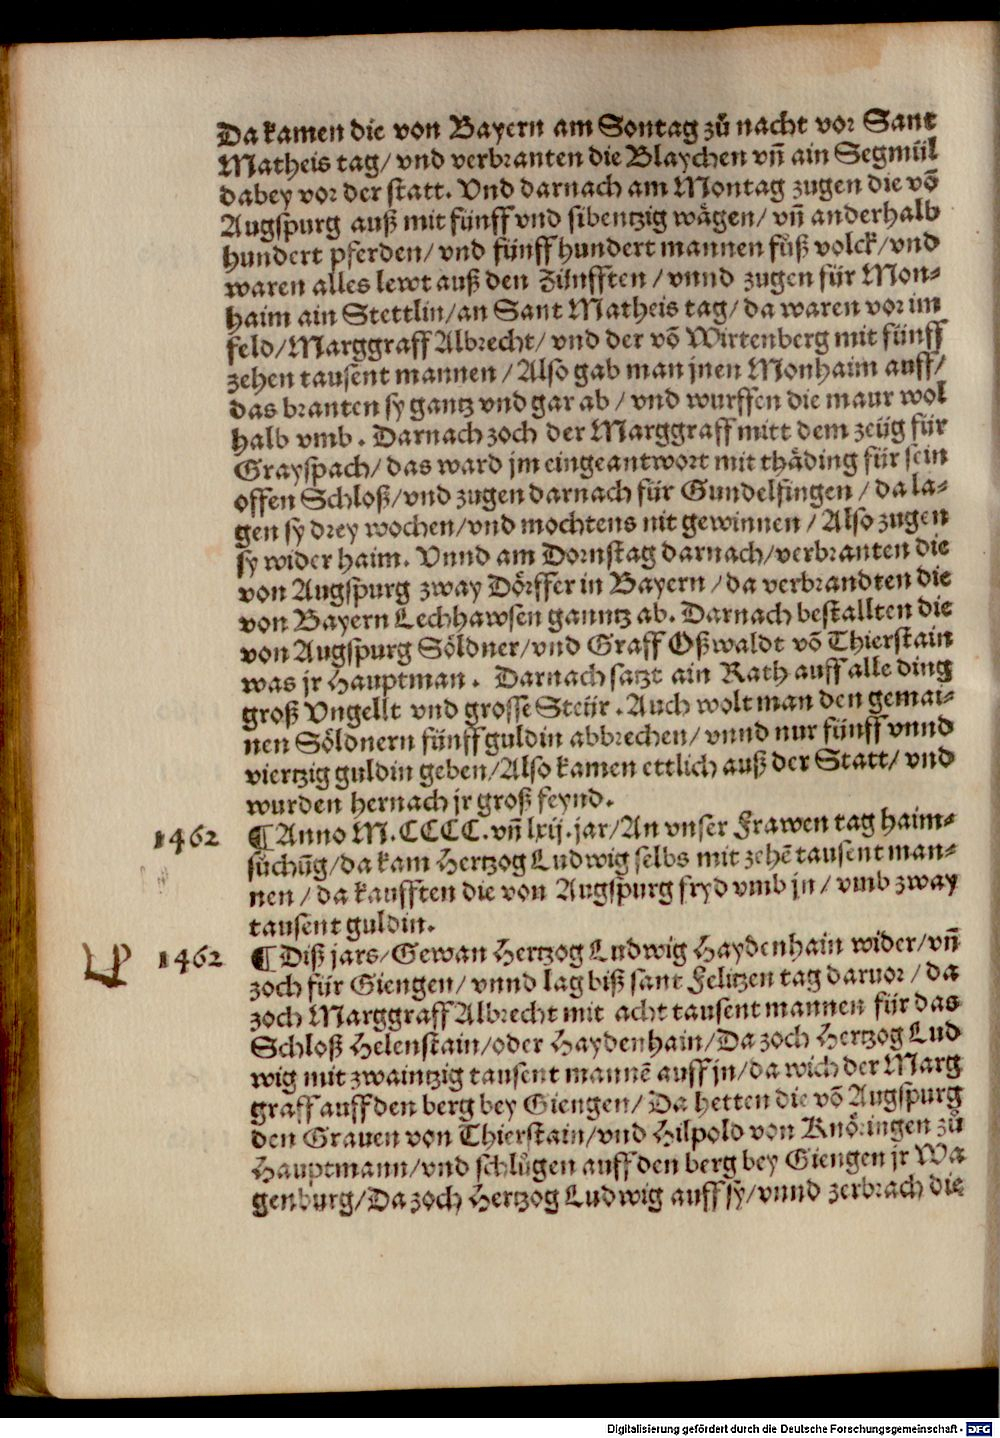 Da kamen die von Bayern am Sontag zů nacht vor Sant
Matheis tag/ vnd verbranten die Blaychen vñ ain Segmül
dabey vor der statt. Vnd darnach am Montag zugen die võ
Augspurg auß mit fünff vnd sibentzig wägen/ vñ anderhalb
hundert pferden/ vnd fünff hundert mannen fůß volck/ vnd
waren alles lewt auß den Zünfften / vnnd zugen für Mon⸗
haim ain Stettlin/ an Sant Matheis tag/ da waren vor im
feld/ Marggraff Albrecht/ vnd der võ Wirtenberg mit fünff
zehen tausent mannen / Also gab man jnen Monhaim auff/
das branten sy gantz vnd gar ab / vnd wurffen die maur wol
halb vmb. Darnach zoch der Marggraff mitt dem zeüg für
Grayspach/ das ward jm eingeantwort mit thäding für sein
offen Schloß/ vnd zugen darnach für Gundelfingen / da la⸗
gen sy drey wochen/ vnd mochtens nit gewinnen / Also zugen
sy wider haim. Vnnd am Dornstag darnach/ verbranten die
von Augspurg zway Dörffer in Bayern / da verbrandten die
von Bayern Lechhawsen ganntz ab. Darnach bestallten die
von Augspurg Söldner/ vnd Graff Oßwaldt võ Thierstain
was jr Hauptman. Darnach satzt ain Rath auff alle ding
groß Vngellt vnd grosse Steür. Auch wolt man den gemai⸗
nen Söldnern fünff guldin abbrechen/ vnnd nur fünff vnnd
viertzig guldin geben/ Also kamen ettlich auß der Statt/ vnd
wurden hernach jr groß feynd.
1462 ¶ Anno M.CCCC.vñ lxij. jar/ An vnser Frawen tag haim⸗
sůchũg/ da kam Hertzog Ludwig selbs mit zehẽ tausent man⸗
nen / da kaufften die von Augspurg fryd vmb jn / vmb zway
tausent guldin.
1462 ¶ Diß jars/ Gewan Hertzog Ludwig Haydenhain wider/ vñ
zoch für Giengen/ vnnd lag biß sant Felitzen tag daruor / da
zoch Marggraff Albrecht mit acht tausent mannen für das
Schloß Helenstain/ oder Haydenhain/ Da zoch Hertzog Lud
wig mit zwaintzig tausent mannẽ auff jn/ da wich der Marg
graff auff den berg bey Giengen/ Da hetten die võ Augspurg
den Grauen von Thierstain/ vnd Hilpold von Knöringen zů
Hauptmann/ vnd schlůgen auff den berg bey Giengen jr Wa
genburg/ Da zoch Hertzog Ludwig auff sy/ vnnd zerbrach die
Digitalisierung gefördert durch die Deutsche Forschungsgemeinschaft - DFG